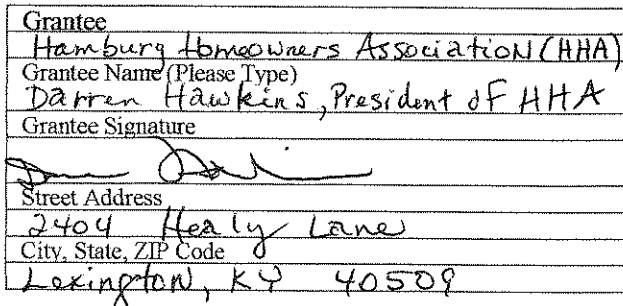 Grantee
Hamburg Homeowners Association (HHA)
Grantee Name (Please Type)
Darren Hawkins, President of HHA
Grantee Signature
Street Address
2404 Healy Lane
City, State, ZIP Code
Lexington, KY 40509